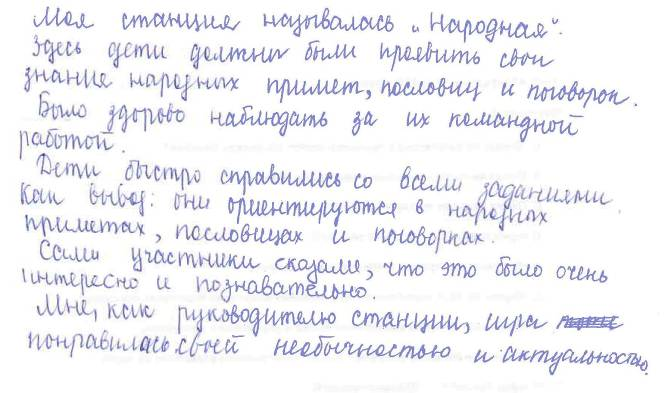 Моя станция называлась „Народная".
Здесь дети должны были проявить свои
знание народных примет, пословиц и поговорок.
Было здорово наблюдать за их командной
работой.
Дети быстро справились со всеми заданиями.
Как вывод: они ориентируются в народных
приметах, пословицах и поговорках.
Сами участники сказали, что это было очень
интересно и познавательно.
Мне, как руководителю станции, игра
понравилась своей необычностью и актуальностью.